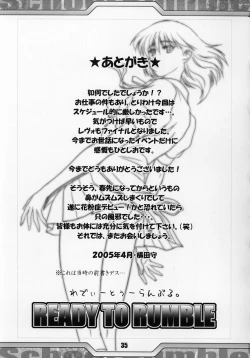 ★あとがき★
如何でしたでしょうか！？
お仕事の件もあり、とりわけ今回は
スケジュール的に厳しかったです…。
気がつけば早いもので
レヴォもファイナルとなりました。
今までお世話になったイベントだけに
感慨もひとしおです。
今までどうもありがとうございました！
そうそう、春先になってからというもの
鼻がムズムズしまくりでして
遂に花粉症デビュー！かと恐れていたら
只の風邪でした…。
皆様もお体には充分に気を付けて下さい。(笑)
それでは、またお会いしましょう。
2005年4月・横田守
※これは当時の前書きデス…
れでぃーとぅーらんぶる。
READY TO RUMBLE
35